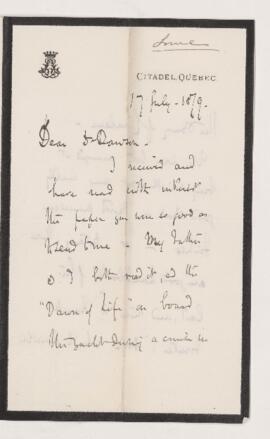 Lorne
CITADEL, QUEBEC.
17 July. 1879.
Dear Dr Dawson.
I received and
have read with interest
the paper you were so good as
to send to me. My father
& I both read it, and the
"Dawn of Life" on board
the yacht during a cruise in